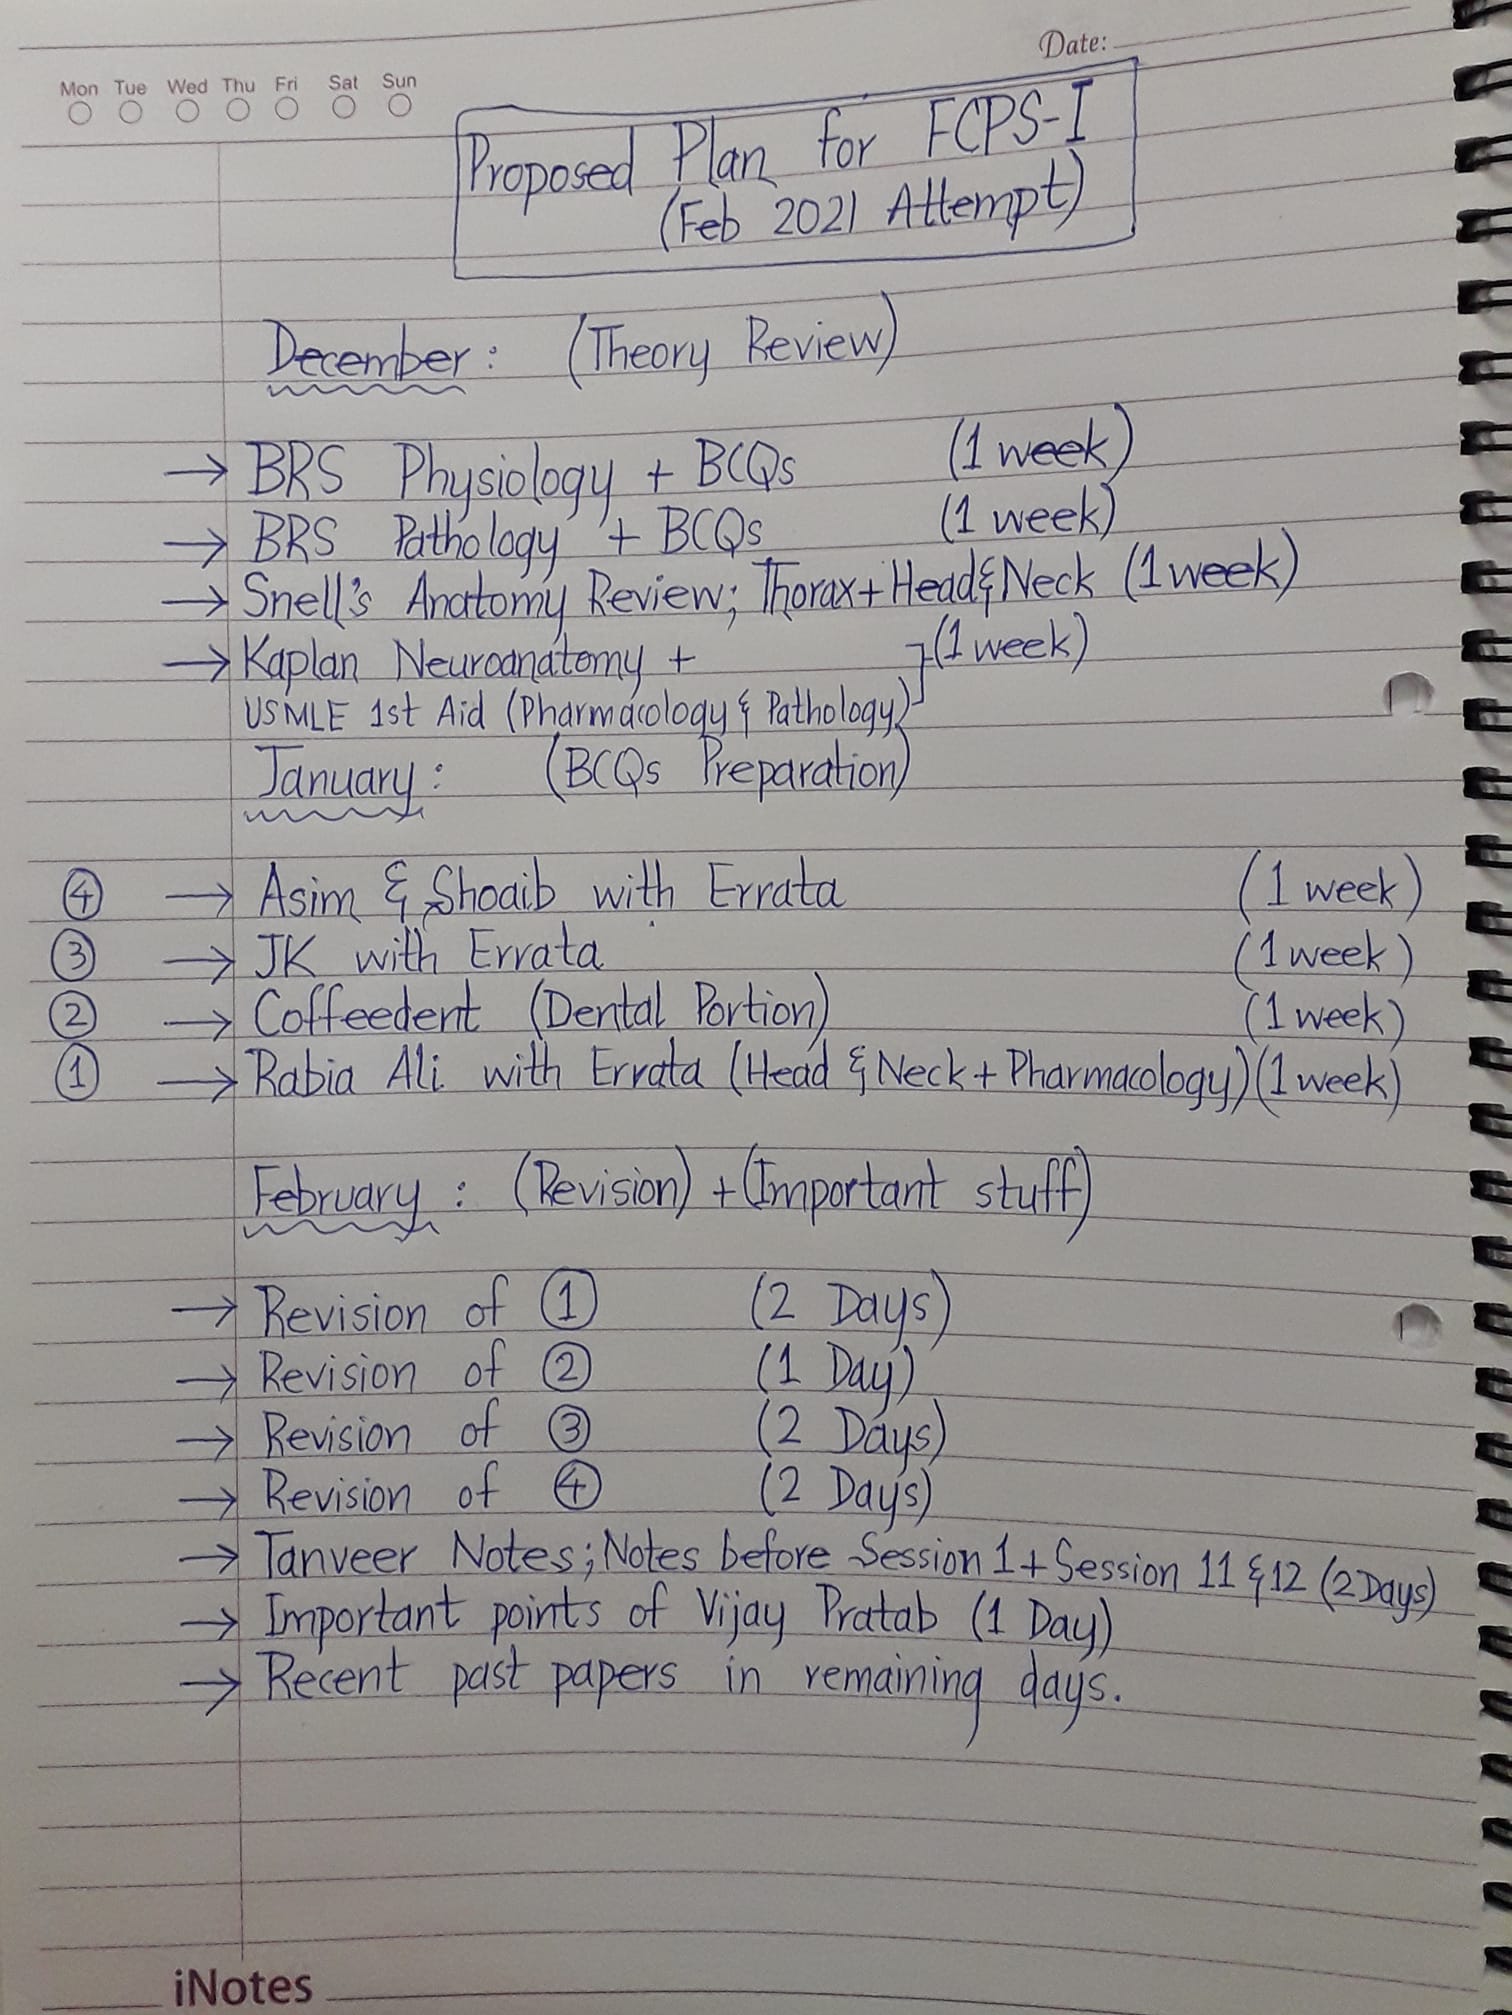 Date:
Mon Tue Wed Thu Fri Sat Sun
Proposed Plan for FCPS-I
(Feb 2021 Attempt)
December: (Theory Review)
→ BRS Physiology + BCQs (1 week)
→ BRS Pathology + BCQs (1 week)
→ Snell's Anatomy Review; Thorax + Head & Neck (1 week)
→ Kaplan Neuroanatomy + (1 week)
USMLE 1st Aid (Pharmacology & Pathology)
January: (BCQs Preparation)
④ → Asim & Shoaib with Errata (1 week)
③ → JK with Errata (1 week)
② → Coffeedent (Dental Portion) (1 week)
① → Rabia Ali with Errata (Head & Neck + Pharmacology) (1 week)
February: (Revision) + (Important stuff)
→ Revision of ① (2 Days)
→ Revision of ② (1 Day)
→ Revision of ③ (2 Days)
→ Revision of ④ (2 Days)
→ Tanveer Notes; Notes before Session 1 + Session 11 & 12 (2 Days)
→ Important points of Vijay Pratab (1 Day)
→ Recent past papers in remaining days.
iNotes